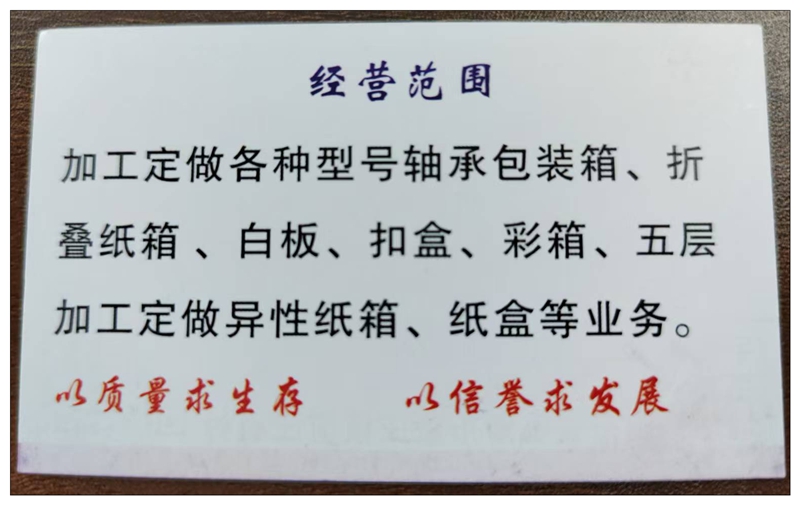 经营范围
加工定做各种型号轴承包装箱、折
叠纸箱、白板、扣盒、彩箱、五层
加工定做异性纸箱、纸盒等业务。
以质量求生存 以信誉求发展